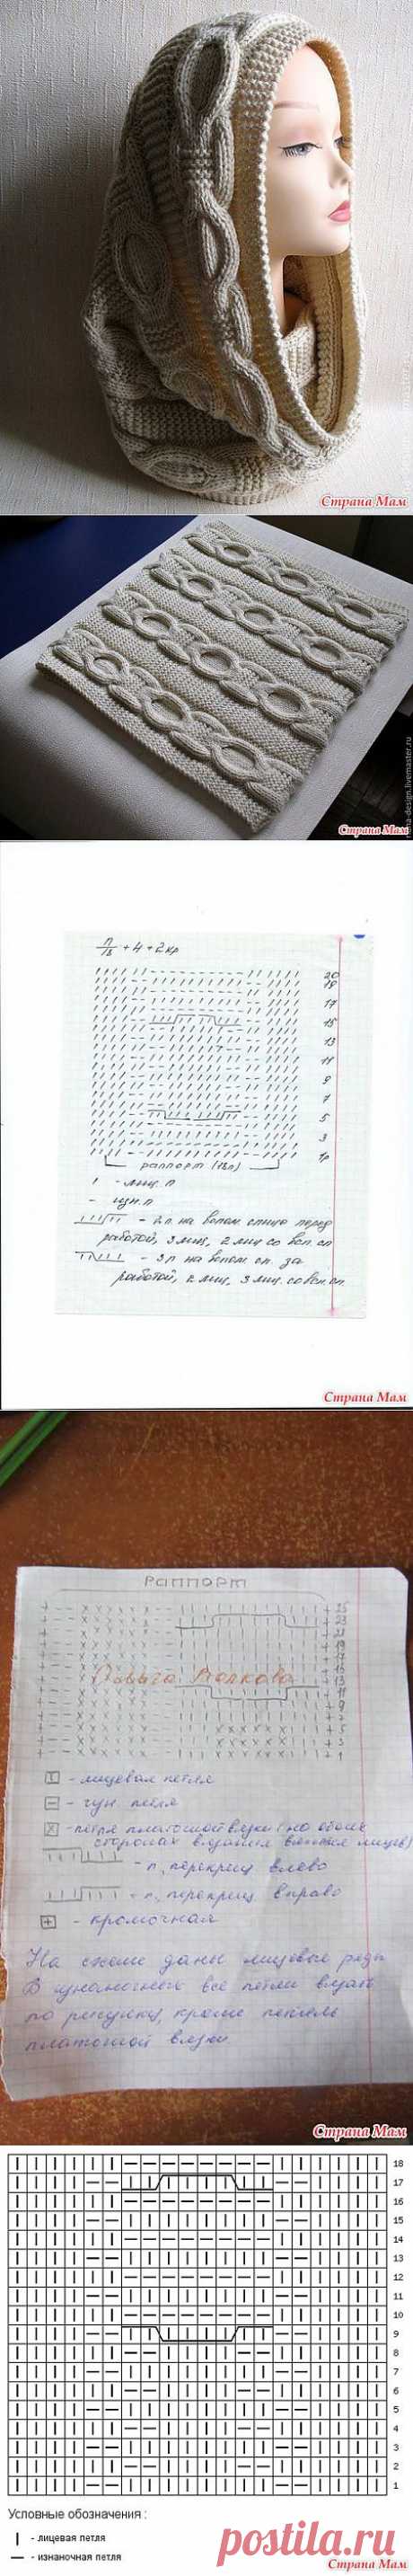 Страна Мам
Страна Мам
n/13 + 4 + 2 кр
20
18
17
15
13
11
9
7
5
3
1р
раппорт (13п)
| - лиц. п
- - изн. п
- 2п на вспом спицу перед
работой, 3 лиц, 2 лиц со всп. сп
- 3п на вспом. сп. за
работой, 2 лиц, 3 лиц. со всп. сп.
Страна Мам
Раппорт
25
23
21
19
17
15
13
11
9
7
5
3
1
- лицевая петля
- петля
- петля платочной вязки (на обеих
сторонах вязания
- п, перекрещ влево
- п, перекрещ вправо
+ - кромочная
На схеме даны лицевые ряды
В изнаночных все петли вязать
по рисунку, кроме петель
платочной вязки
Страна Мам
18
17
16
15
14
13
12
11
10
9
8
7
6
5
4
3
2
1
Условные обозначения :
| - лицевая петля
— - изнаночная петля
postila.ru
Страна Мам